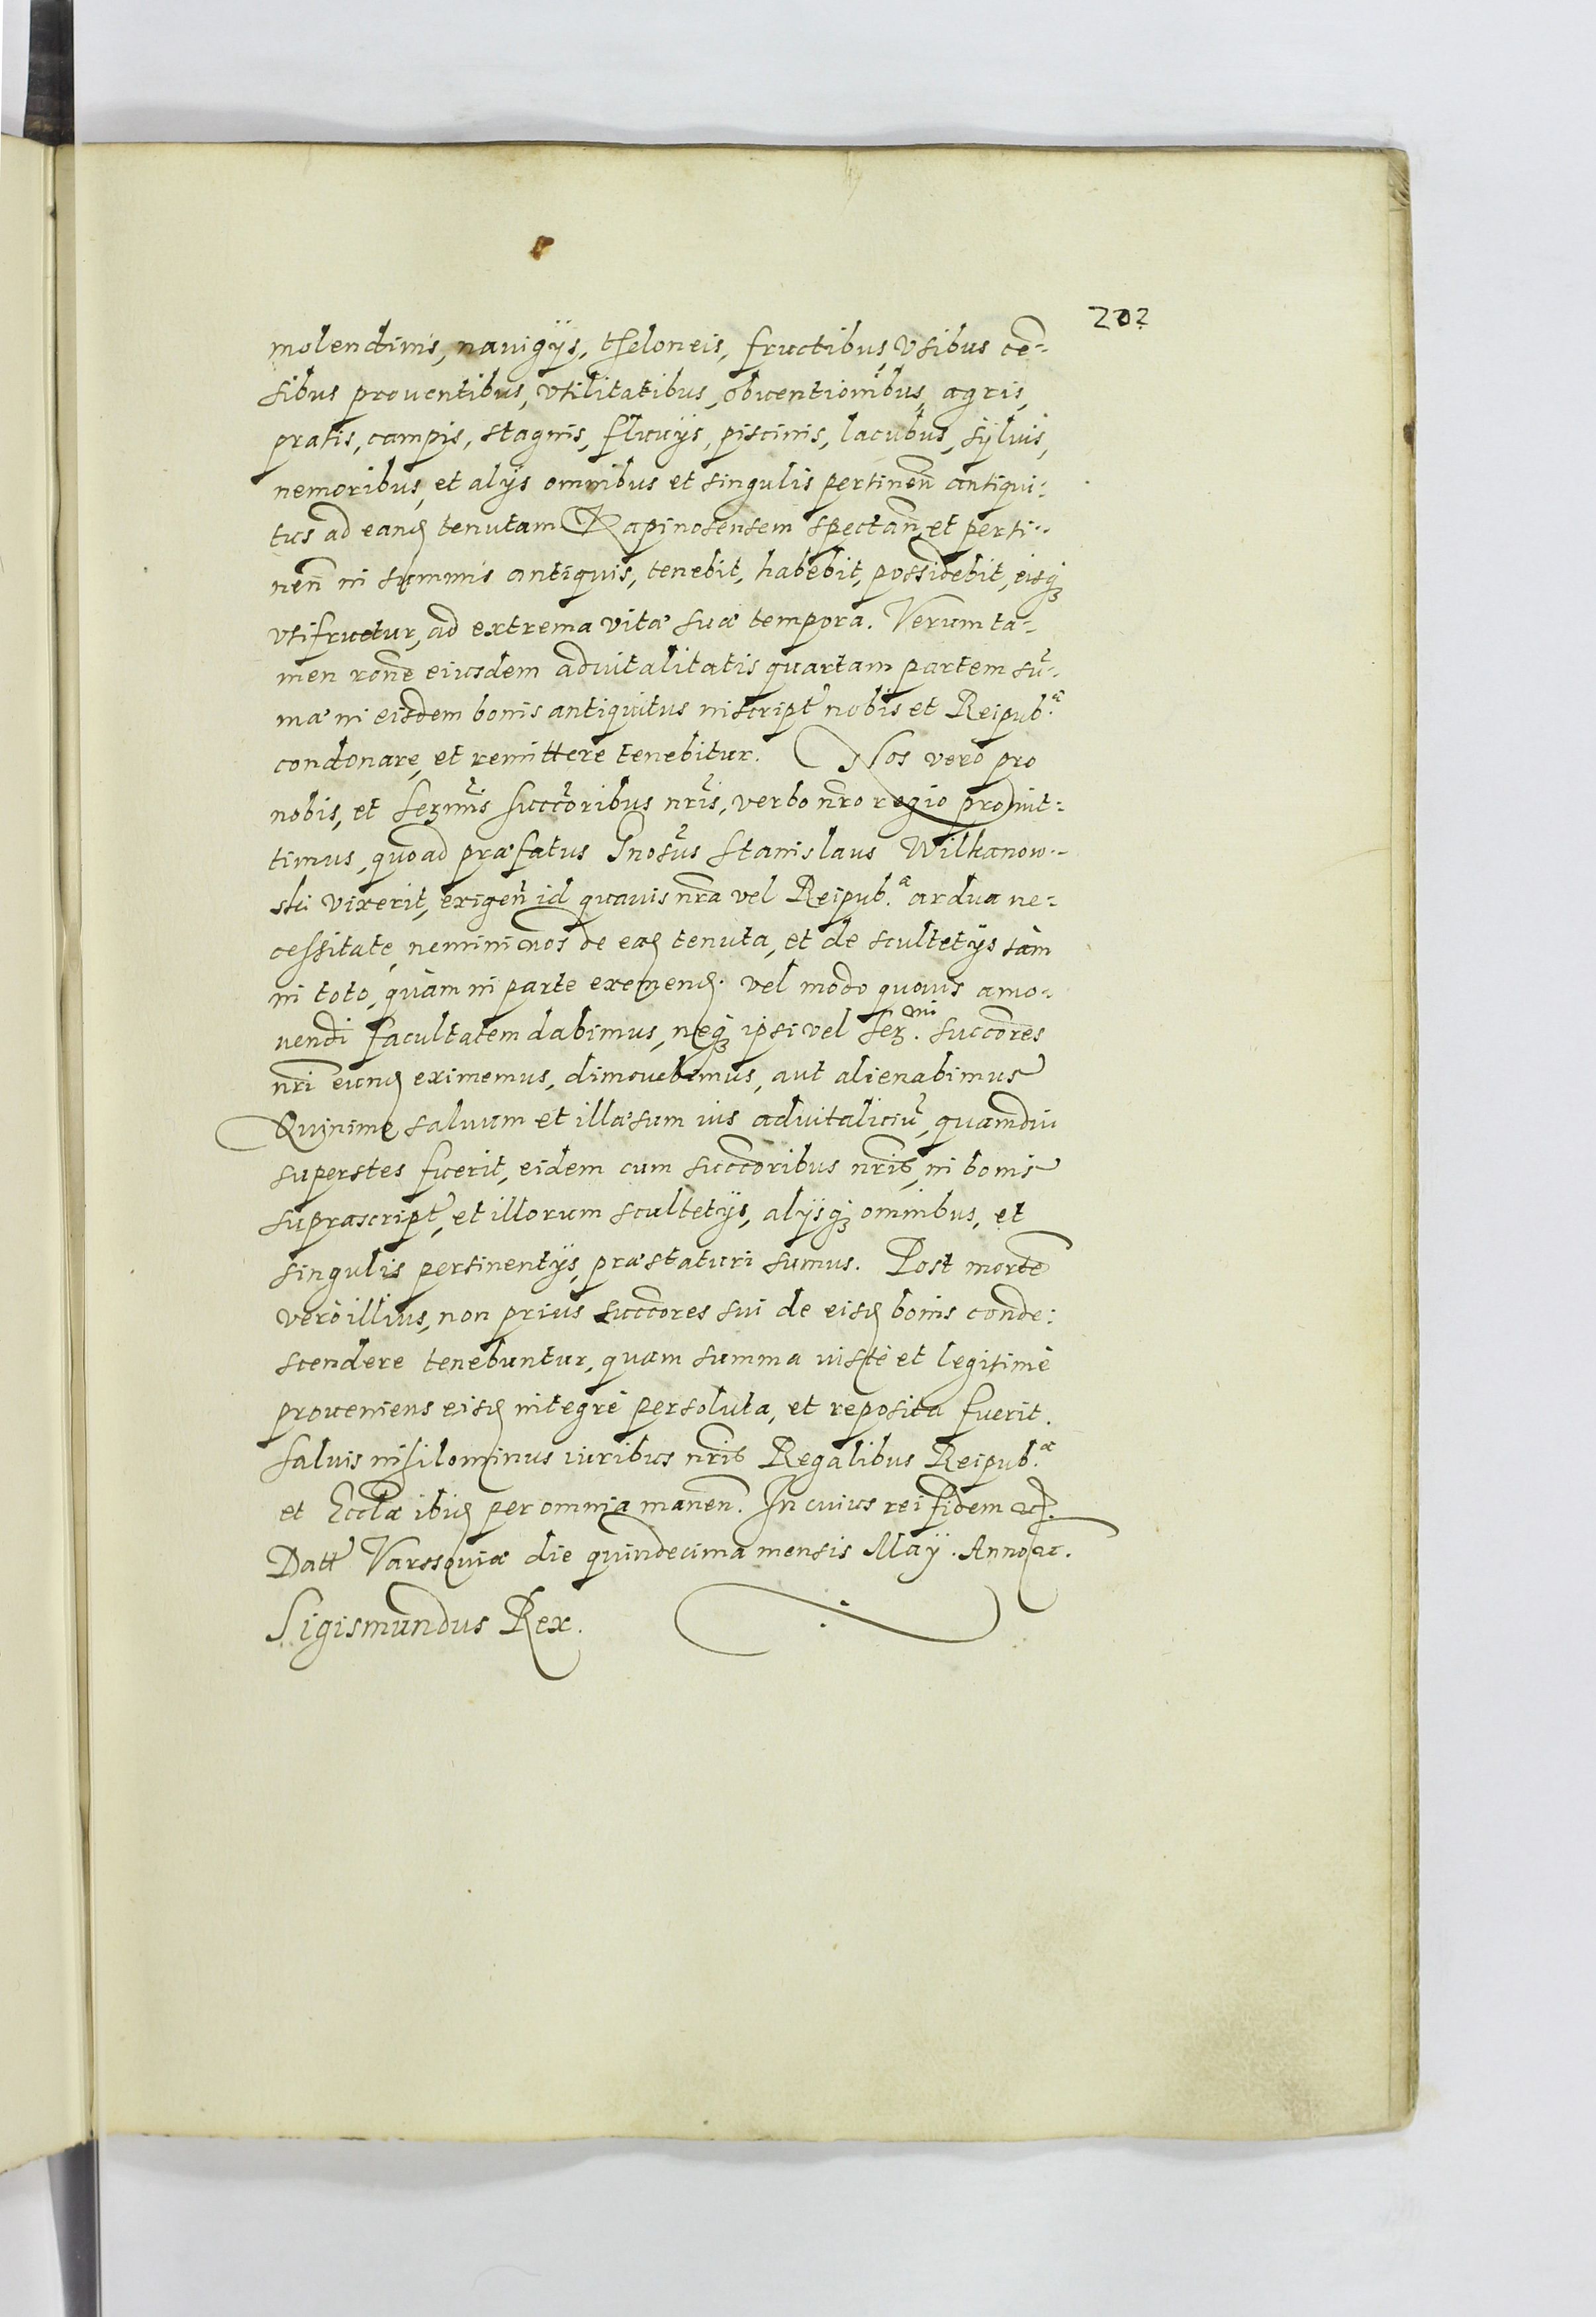 202
molendinis, nauigÿs, theloneis, fructibus, vsibus cē-
sibus prouentibus, vtilitatibus, obuentionibus, agris,
pratis, campis, stagnis, fluuÿs, piscinis, lacubus, sÿluis,
nemoribus, et alÿs omnibus et singulis pertineñ antiqui-
tus ad eand tenutam Rapinosensem spectañ et perti-
neñ in summis antiquis, tenebit, habebit, possidebit, eisq́
vtifruetur, ad extrema vitæ suæ tempora. Verum ta-
men rone eiusdem aduitalitatis quartam partem sū-
mæ in eisdem bonis antiquitus inscript nobis et Reipub.æ
condonare, et remittere tenebitur. Nos vero pro
nobis, et serm̃is succoribus nris, verbo nro regio promit-
timus, quoad præfatus Gnosus Stanislaus Wilkanow-
ski vixerit, exigeñ id quauis nra vel Reipub.æ ardua ne-
cessitate, nemini nos de ead tenuta, et de scultetÿs tàm
in toto, quàm in parte eximend. vel modo quouis amo-
uendi facultatem dabimus, neq́ ipsi vel Ser.mi succores
nri eund eximemus, dimouebimus, aut alienabimus
Quinimo saluum et illæsum ius aduitaliciū, quamdiu
superstes fuerit, eidem cum succoribus nris, in bonis
suprascript, et illorum scultetÿs, alÿsq́ omnibus, et
singulis pertinentÿs, præstaturi sumus. Post mortē
verò illius, non prius succores sui de eisd bonis conde-
scendere tenebuntur, quam summa iustè et legitimè
proueniens eisd integrè persoluta, et reposita fuerit.
Saluis nihilominus iuribus nris Regalibus Reipub.æ
et Ecclæ ibid per omnia maneñ. In cuius rei fidem etc.
Datt Varssouiæ die quindecima mensis Maÿ. Anno etc.
Sigismundus Rex.